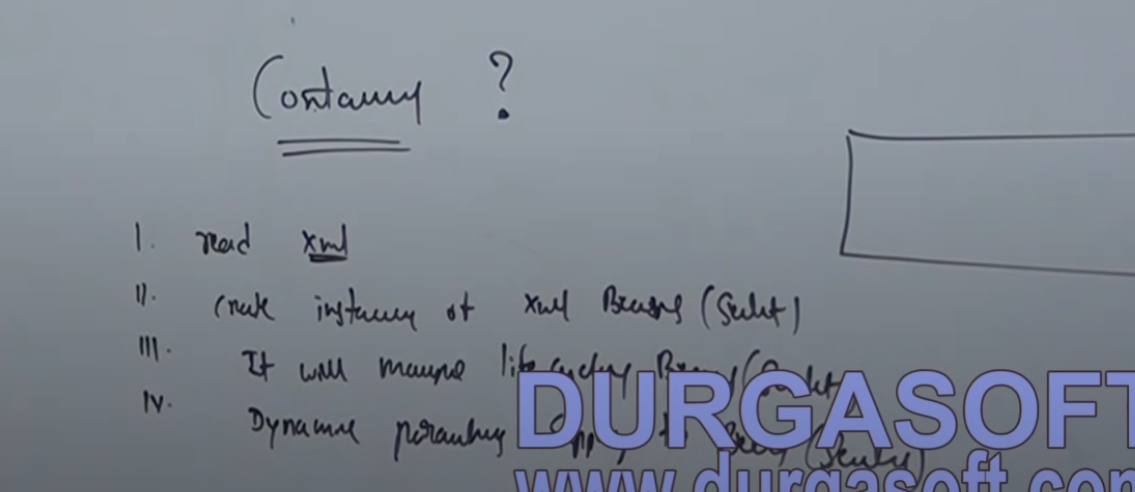 Container ?
I. read xml
II. Create instance of xml Beans (Servlet)
III. It will manage life cycle Bean (Servlet
IV. Dynamic parameters to Bean (Servlet)
DURGASOFT
www.durgasoft.com